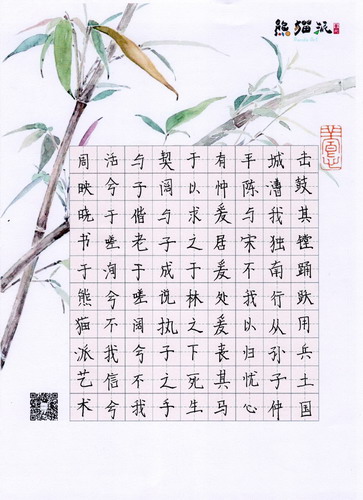 熊猫派
击鼓其镗踊跃用兵土国
城漕我独南行从孙子仲
平陈与宋不我以归忧心
有忡爰居爰处爰丧其马
于以求之于林之下死生
契阔与子成说执子之手
与子偕老于嗟阔兮不我
活兮于嗟洵兮不我信兮
周映晓书于熊猫派艺术